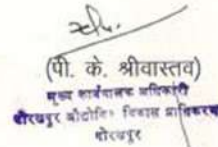 (पी. के. श्रीवास्तव)
मुख्य कार्यपालक अधिकारी
गोरखपुर औद्योगिक विकास प्राधिकरण
गोरखपुर